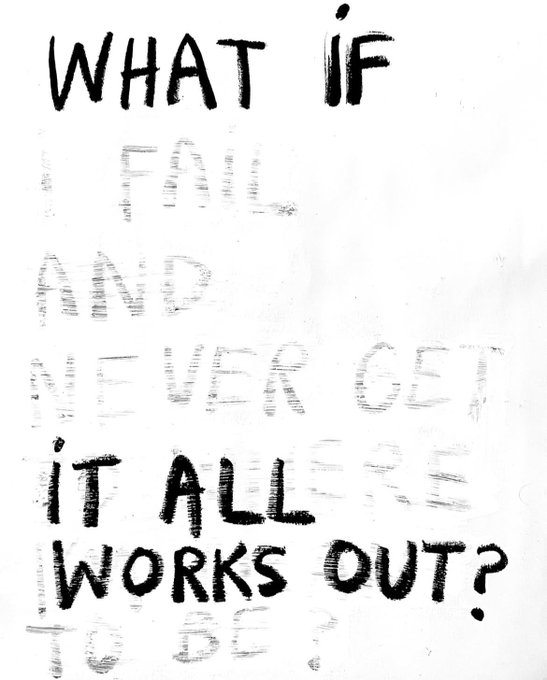 WHAT iF
I FAIL
AND
NEVER GET
iT ALL
WORKS OUT?
TO BE ?